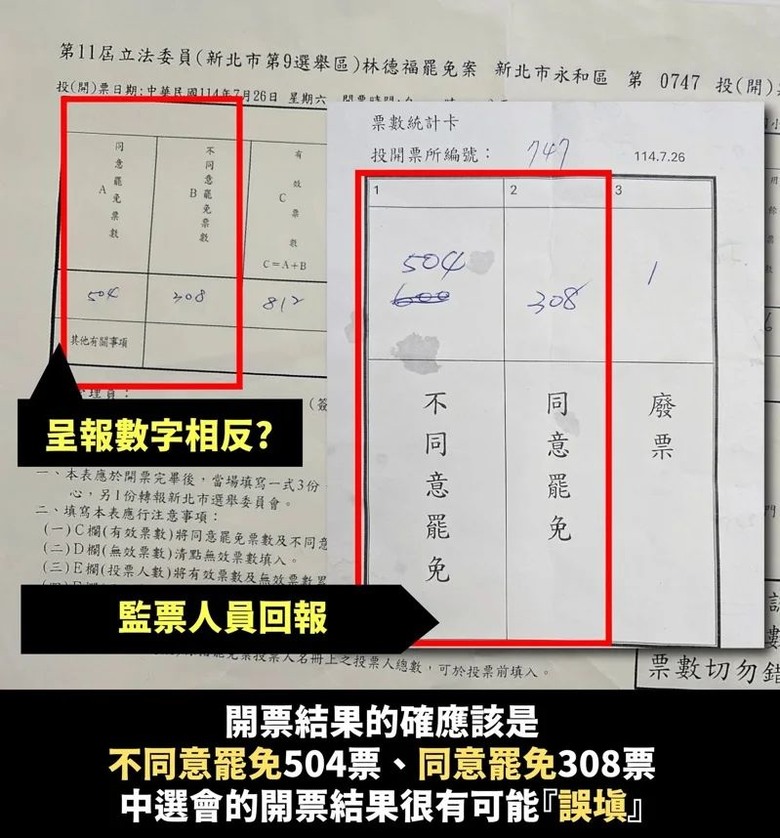 第11屆立法委員(新北市第9選舉區)林德福罷免案 新北市永和區 第 0747 投(開)
投(開)票日期:中華民國114年7月26日 星期六
同意罷免票數 A
不同意罷免票數 B
有效票數 C
C=A+B
504 308 812
其他有關事項
票數統計卡
投開票所編號: 747 114.7.26
1 2 3
504 308 1
600
不同意罷免
同意罷免
廢票
管理員:
(簽
呈報數字相反?
一、本表應於開票完畢後,當場填寫一式3份
心,另1份轉報新北市選舉委員會。
二、填寫本表應行注意事項:
(一)C欄(有效票數)將同意罷免票數及不同意
(二)D欄(無效票數)清點無效票數填入。
(三)E欄(投票人數)將有效票數及無效票數累
監票人員回報
投票人名冊上之投票人總數,可於投票前填入。
票數切勿錯
開票結果的確應該是
不同意罷免504票、同意罷免308票
中選會的開票結果很有可能『誤填』